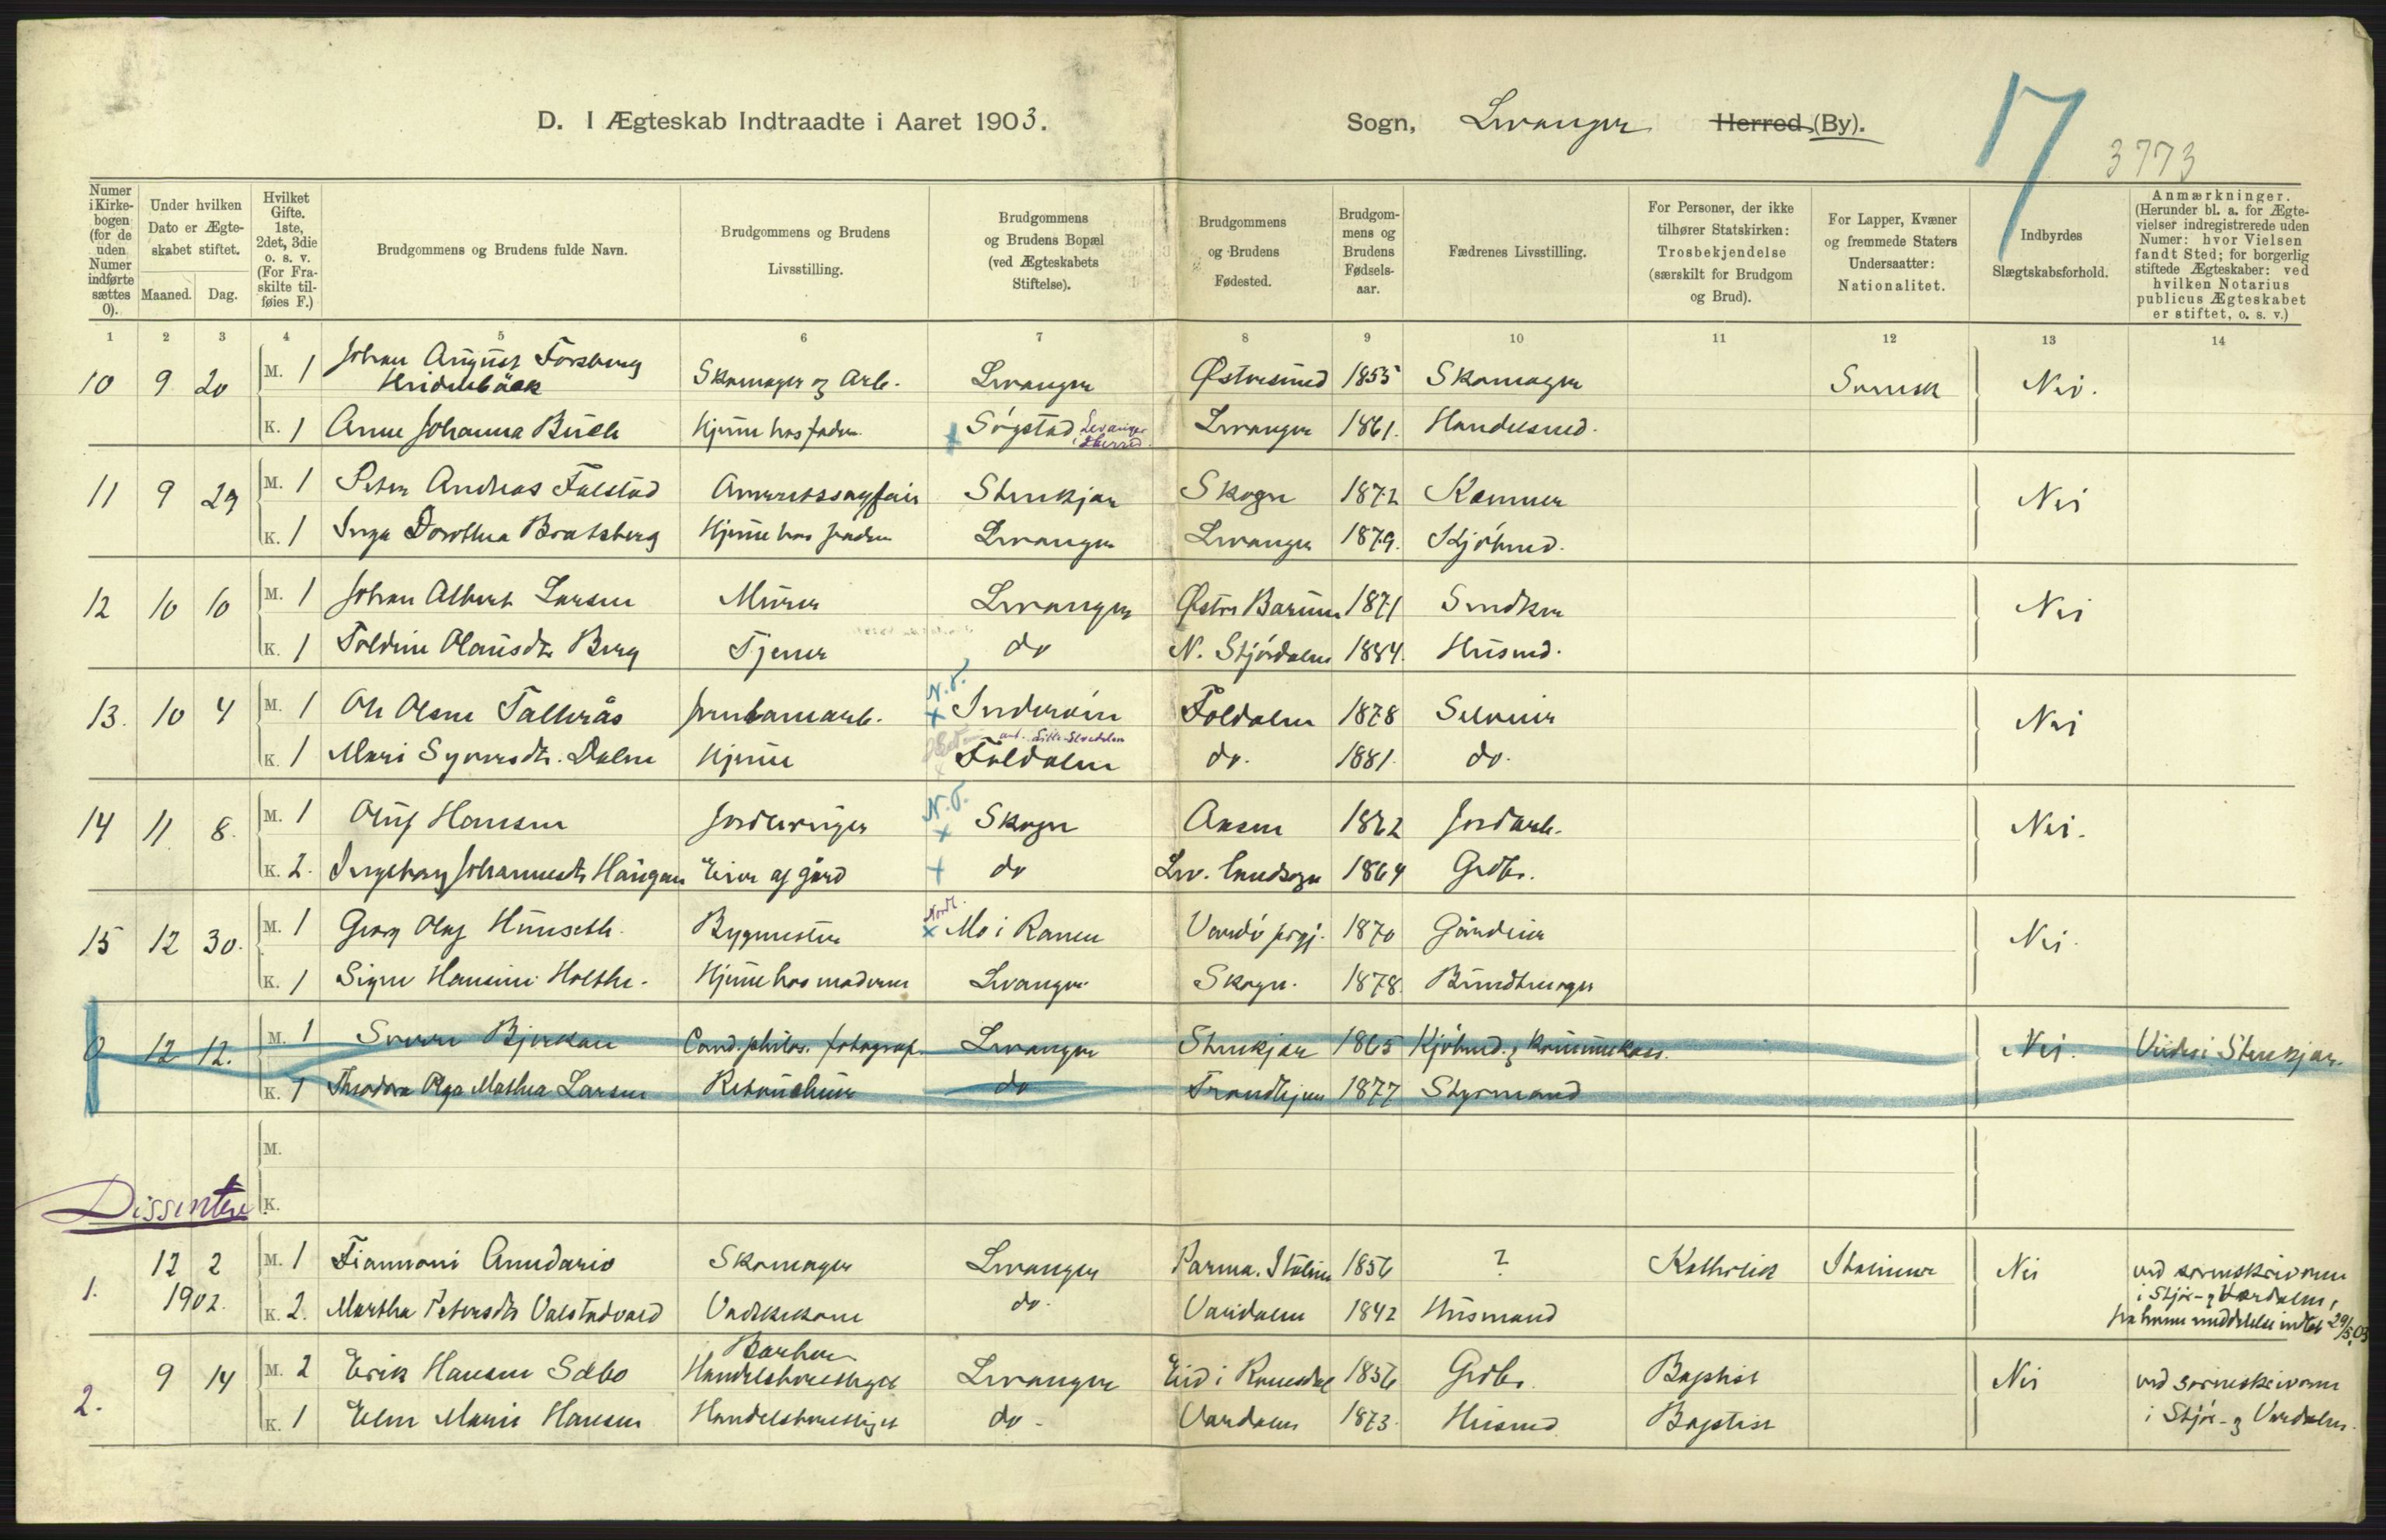 D. I Ægteskab Indtraadte i Aaret 1903. Sogn, Levanger Herred (By).
17
3773
Numer i Kirkebogen (for de uden Numer indførte sættes 0).
Under hvilken Dato er Ægteskabet stiftet.
Maaned. Dag.
Hvilket Gifte. 1ste, 2det, 3die o. s. v. (For Fraskilte tilføies F.)
Brudgommens og Brudens fulde Navn.
Brudgommens og Brudens Livsstilling.
Brudgommens og Brudens Bopæl (ved Ægteskabets Stiftelse).
Brudgommens og Brudens Fødested.
Brudgommens og Brudens Fødselsaar.
Fædrenes Livsstilling.
For Personer, der ikke tilhører Statskirken: Trosbekjendelse (særskilt for Brudgom og Brud).
For Lapper, Kvæner og fremmede Staters Undersaatter: Nationalitet.
Indbyrdes Slægtskabsforhold.
Anmærkninger. (Herunder bl. a. for Ægtevielser indregistrerede uden Numer: hvor Vielsen fandt Sted; for borgerlig stiftede Ægteskaber: ved hvilken Notarius publicus Ægteskabet er stiftet, o. s. v.)
1 2 3 4 5 6 7 8 9 10 11 12 13 14
10 9 20 M. 1 Johan August Forsberg Skomager og Arb. Levanger Østersund 1855 Skomager Svensk Nei.
K. 1 Anne Johanna Buch Hjemme hos faderen Søgstad Levanger Herred Levanger 1861. Handelsmd.
11 9 29 M. 1 Peter Andreas Falstad Steinkjær Skogn 1872 Nei
K. 1 Inga Dorothea Bratsberg Hjemme hos faderen Levanger Levanger 1879. Kjøbmd.
12 10 10 M. 1 Johan Albert Larsen Murer Levanger Østre Bærum 1871 Snedker Nei
K. 1 Toldine Olausdtr Berg Tjener do N. Stjørdalen 1884. Husmd.
13. 10 4 M. 1 Ole Olsen Tallerås Jernbanearb. N. T. Inderøen Foldalen 1878 Selveier Nei
K. 1 Mari Syversdtr. Dalen Hjemme Foldalen do. 1881. do.
14 11 8. M. 1 Oluf Hansen N. T. Skogn Aasen 1862 Jordarb. Nei.
K. 2. Ingeborg Johannesdtr Haugan Eier af gård do Lev. landsogn 1864 Grdbr.
15 12 30. M. 1 Georg Olaf Hunseth. Bygmester Nordl. Mo i Ranen Verdø prgj. 1870 Gårdeier Nei.
K. 1 Signe Hansine Holthe. Hjemme hos moderen Levanger. Skogn. 1878. Bundtmager
0 12 12. M. 1 Sverre Bjerkan Cand. philos. fotograf. Levanger Steinkjær 1865 Kjøbmd. & kommunekass. Nei. Viede i Steinkjær.
K. 1 Theodora Olga Mathea Larsen Retouchør do Trondhjem 1877 Styrmand
M.
K.
Dissentere
1. 12 2 M. 1 Fiammoni Annidario Skomager Levanger Parma. Italien 1856 ? Katholsk Italiener Nei ved sorenskriveren
1902. K. 2. Martha Petersdtr Valstadvald Vadskekone do. Værdalen 1842 Husmand i Stjør- & Værdalen,
fra hvem meddelelse indløb 29/5 03
2. 9 14 M. 2 Erik Hansen Sæbo Barber Handelsbestyrer Levanger Eid i Romsdal 1856 Grdbr. Baptist Nei ved sorenskriveren
K. 1 Elen Marie Hansen Handelsbestyrer do. Værdalen 1873. Husmd Baptist i Stjør- & Værdalen.